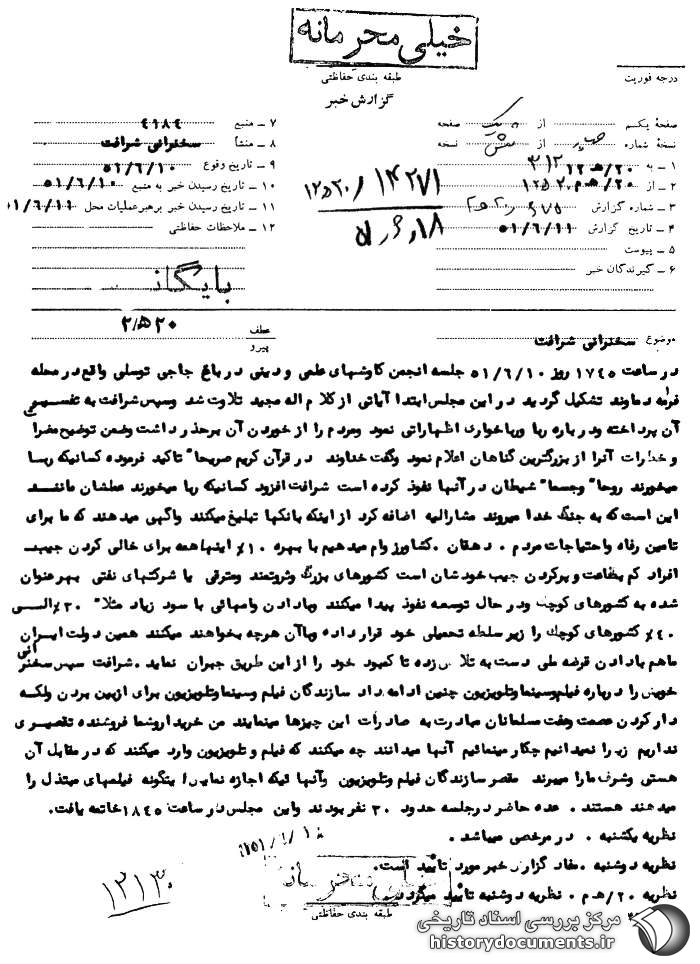 خیلی محرمانه
طبقه بندی حفاظتی
درجه فوریت
گزارش خبر
صفحهٔ یکم از یک صفحه
نسخهٔ شماره از شش نسخه
۱ ـ به ۲۰/ھ ۱۲ ۳۱۲
۲ ـ از ۲۰/ھ م
۳ ـ شماره گزارش
۴ ـ تاریخ گزارش ۵۱/۶/۱۱
۵ ـ پیوست
۶ ـ گیرندگان خبر
۷ ـ منبع ۴۹۸۴
۸ ـ منشأ سخنرانی شرافت
۹ ـ تاریخ وقوع ۵۱/۶/۱۰
۱۰ ـ تاریخ رسیدن خبر به منبع ۵۱/۶/۱۰
۱۱ ـ تاریخ رسیدن خبر برهبرعملیات محل ۵۱/۶/۱۱
۱۲ ـ ملاحظات حفاظتی
۱۴۲۷۱
بایگانی
عطف ۲۰ ھ/۲
پیرو
موضوع سخنرانی شرافت
در ساعت ۱۷۴۵ روز ۵۱/۶/۱۰ جلسه انجمن کاوشهای علمی و دینی در باغ حاجی توسلی واقع در محله
فرمه دماوند تشکیل گردید در این مجلس ابتدا آیاتی از کلام اله مجید تلاوت شد وسپس شرافت به تفسیر
آن پرداخته ودرباره ربا ورباخواری اظهاراتی نمود ومردم را از خوردن آن برحذر داشت وضمن توضیح مضرا
و خطرات آنرا از بزرگترین گناهان اعلام نمود وگفت خداوند در قرآن کریم صریحا" تاکید فرموده کسانیکه ربا
میخورند روحا" وجسما" شیطان در آنها نفوذ کرده است شرافت افزود کسانیکه ربا میخورند عطشان مانند
این است که به جنگ خدا میروند مشارالیه اضافه کرد از اینکه بانکها تبلیغ میکنند واگهی میدهند که ما برای
تامین رفاه واحتیاجات مردم ، دهقان ، کشاورز وام میدهیم با بهره ۱۰٪ اینها همه برای خالی کردن جیب
افراد کم بضاعت و پرکردن جیب خودشان است کشورهای بزرگ وثروتمند ومترقی یا شرکتهای نفتی بهر عنوان
شده به کشورهای کوچک ودر حال توسعه نفوذ پیدا میکنند وبادادن وامهائی با سود زیاد مثلا" ۳۰٪الی
۴۰٪ کشورهای کوچک را زیر سلطه تحمیلی خود قرار داده وباآن هرچه بخواهند میکنند همین دولت ایران
ماهم بادادن قرضه ملی دست به تلاش زده تا کمبود خود را از این طریق جبران نماید.شرافت سپس سخنرانی
خویش را درباره فیلم وسینما وتلویزیون چنین ادامه داد سازندگان فیلم وسینما وتلویزیون برای ازبین بردن ولکه
دار کردن عصمت وعفت مسلمانان مبادرت به صادرات این چیزها مینمایند من خریدار وشما فروشنده تقصیری
نداریم زیرا نمیدانیم چکار مینمائیم آنها میدانند چه میکنند که فیلم و تلویزیون وارد میکنند که در مقابل آن
هستی وشرف ما را میبرند مقصر سازندگان فیلم وتلویزیون وآنها ئیکه اجازه نمایش اینگونه فیلمهای مبتذل را
میدهند هستند . عده حاضر درجلسه حدود ۳۰ نفر بودند واین مجلس در ساعت ۱۸۴۵ خاتمه یافت.
نظریه یکشنبه . در مرخصی میباشد .
نظریه دوشنبه . مفاد گزارش خبر مورد تائید است.
نظریه ۲۰/ھ م . نظریه دوشنبه تائید میگردد.
خیلی محرمانه
طبقه بندی حفاظتی
۱۳۱۳۰
مرکز بررسی اسناد تاریخی
historydocuments.ir